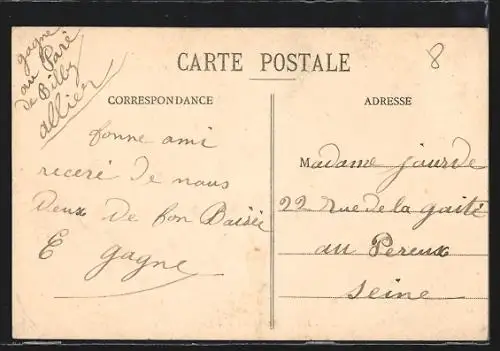 gagne
au Paré
de Billy
allier
CARTE POSTALE
8
CORRESPONDANCE
ADRESSE
bonne ami
receré de nous
Deux de bon Baisée
E gagne
Madame jourde
22 rue de la gaité
au Pereux
seine